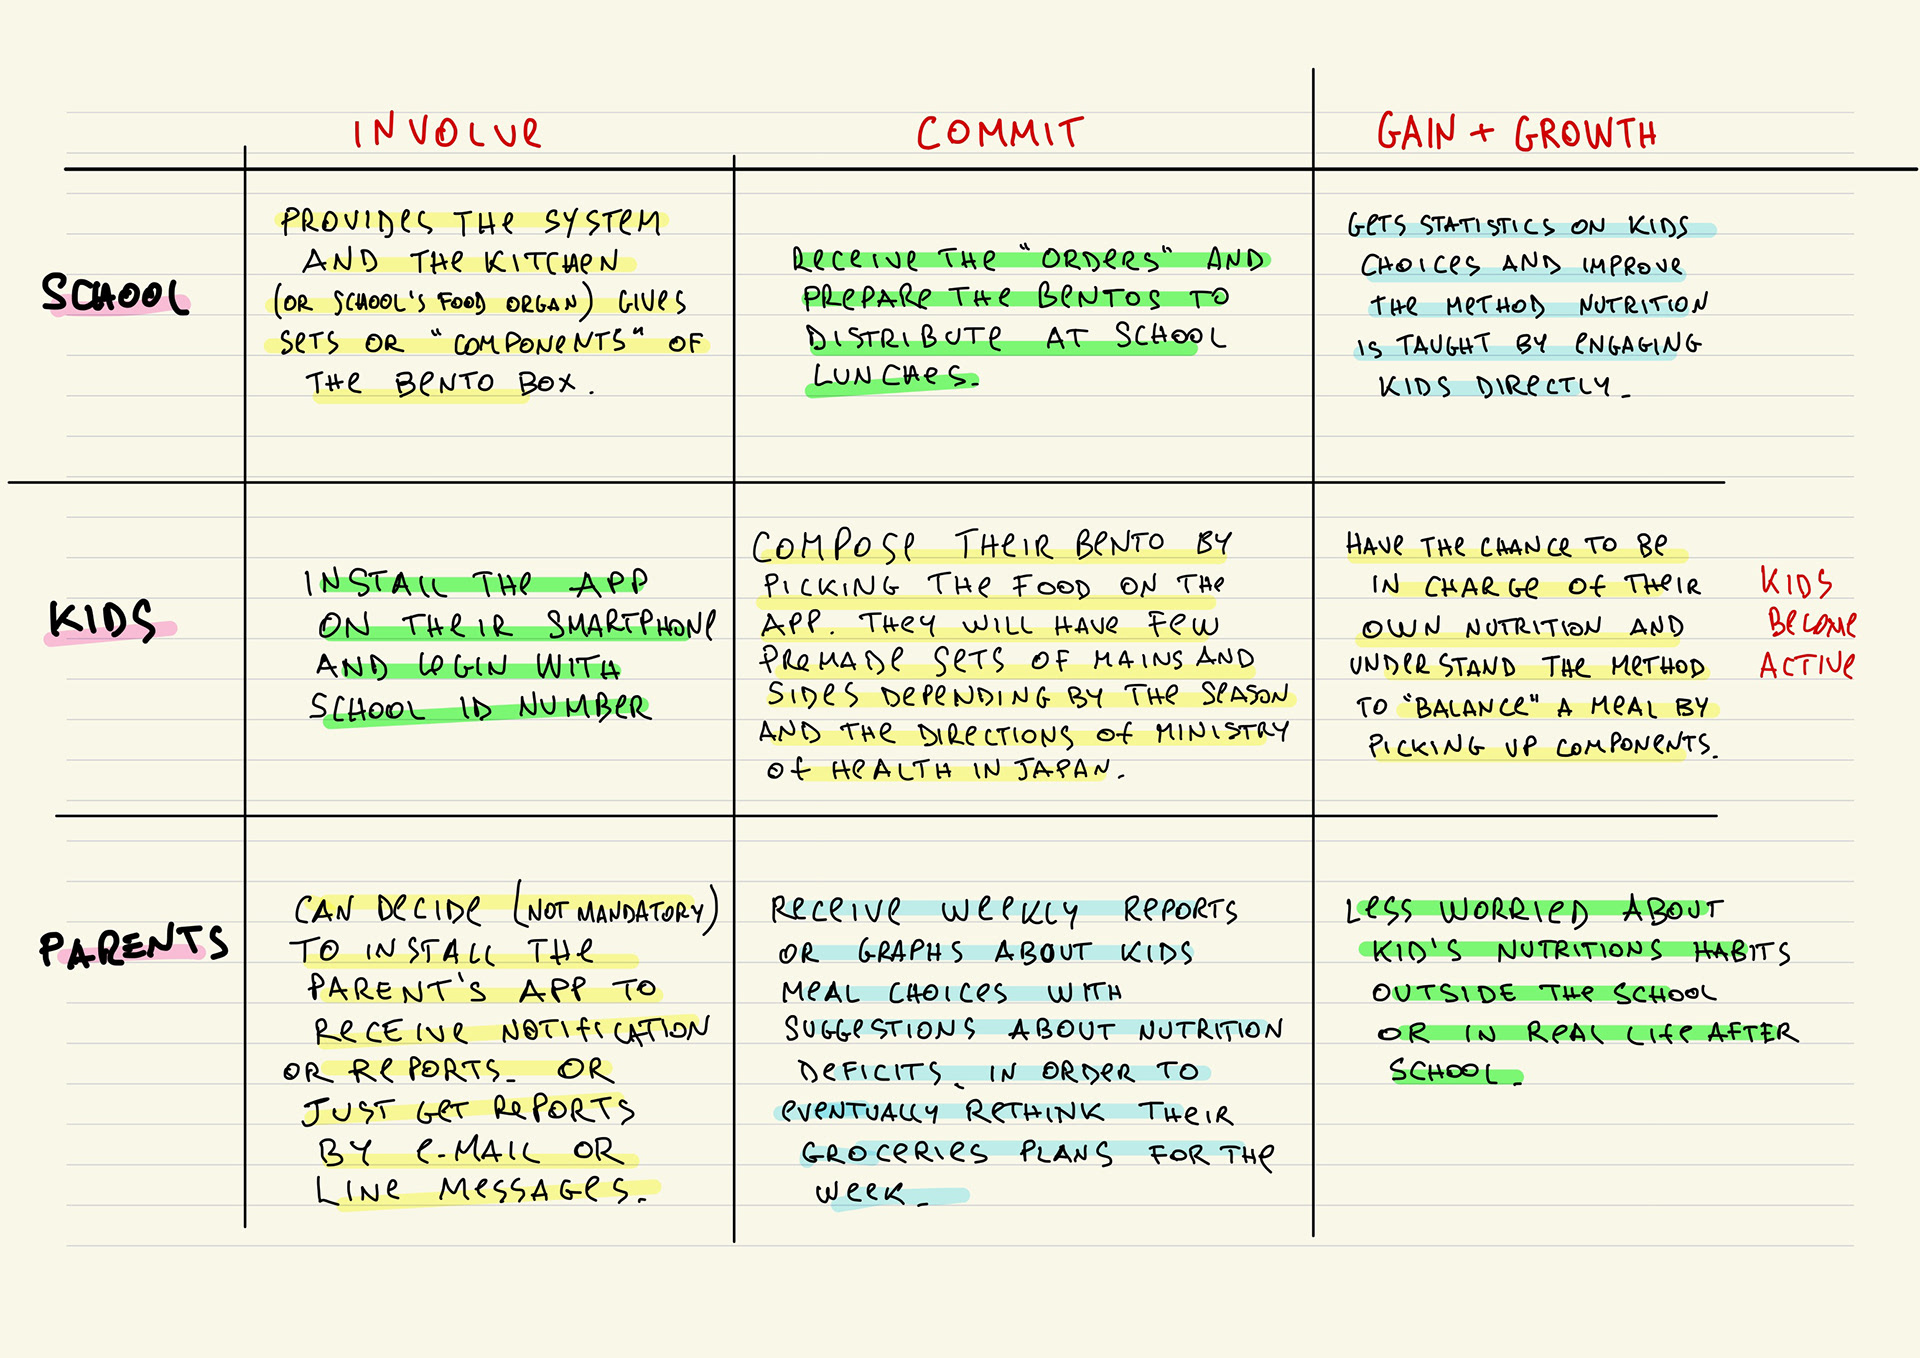 INVOLVE
COMMIT
GAIN + GROWTH
SCHOOL
PROVIDES THE SYSTEM
AND THE KITCHEN
(OR SCHOOL'S FOOD ORGAN) GIVES
SETS OR "COMPONENTS" OF
THE BENTO BOX.
RECEIVE THE "ORDERS" AND
PREPARE THE BENTOS TO
DISTRIBUTE AT SCHOOL
LUNCHES.
GETS STATISTICS ON KIDS
CHOICES AND IMPROVE
THE METHOD NUTRITION
IS TAUGHT BY ENGAGING
KIDS DIRECTLY.
KIDS
INSTALL THE APP
ON THEIR SMARTPHONE
AND LOGIN WITH
SCHOOL ID NUMBER
COMPOSE THEIR BENTO BY
PICKING THE FOOD ON THE
APP. THEY WILL HAVE FEW
PREMADE SETS OF MAINS AND
SIDES DEPENDING BY THE SEASON
AND THE DIRECTIONS OF MINISTRY
OF HEALTH IN JAPAN.
HAVE THE CHANCE TO BE
IN CHARGE OF THEIR
OWN NUTRITION AND
UNDERSTAND THE METHOD
TO "BALANCE" A MEAL BY
PICKING UP COMPONENTS.
KIDS
BECOME
ACTIVE
PARENTS
CAN DECIDE (NOT MANDATORY)
TO INSTALL THE
PARENT'S APP TO
RECEIVE NOTIFICATION
OR REPORTS. OR
JUST GET REPORTS
BY E-MAIL OR
LINE MESSAGES.
RECEIVE WEEKLY REPORTS
OR GRAPHS ABOUT KIDS
MEAL CHOICES WITH
SUGGESTIONS ABOUT NUTRITION
DEFICITS, IN ORDER TO
EVENTUALLY RETHINK THEIR
GROCERIES PLANS FOR THE
WEEK.
LESS WORRIED ABOUT
KID'S NUTRITIONS HABITS
OUTSIDE THE SCHOOL
OR IN REAL LIFE AFTER
SCHOOL.